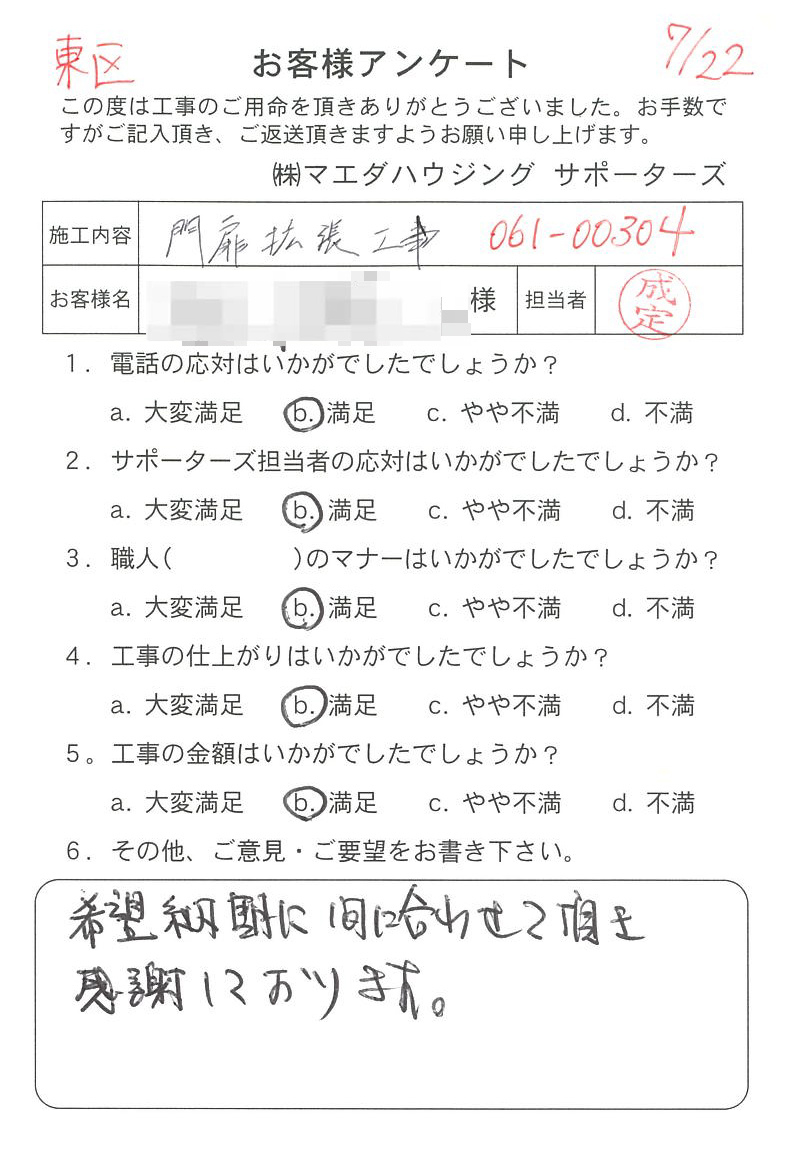 東区
7/22
お客様アンケート
この度は工事のご用命を頂きありがとうございました。お手数で
すがご記入頂き、ご返送頂きますようお願い申し上げます。
㈱マエダハウジング サポーターズ
施工内容 門扉拡張工事 061-00304
お客様名 様 担当者 成定
1．電話の応対はいかがでしたでしょうか？
a. 大変満足 b. 満足 c. やや不満 d. 不満
2．サポーターズ担当者の応対はいかがでしたでしょうか？
a. 大変満足 b. 満足 c. やや不満 d. 不満
3．職人( )のマナーはいかがでしたでしょうか？
a. 大変満足 b. 満足 c. やや不満 d. 不満
4．工事の仕上がりはいかがでしたでしょうか？
a. 大変満足 b. 満足 c. やや不満 d. 不満
5。工事の金額はいかがでしたでしょうか？
a. 大変満足 b. 満足 c. やや不満 d. 不満
6．その他、ご意見・ご要望をお書き下さい。
希望納期に間に合わせて頂き
感謝しております。